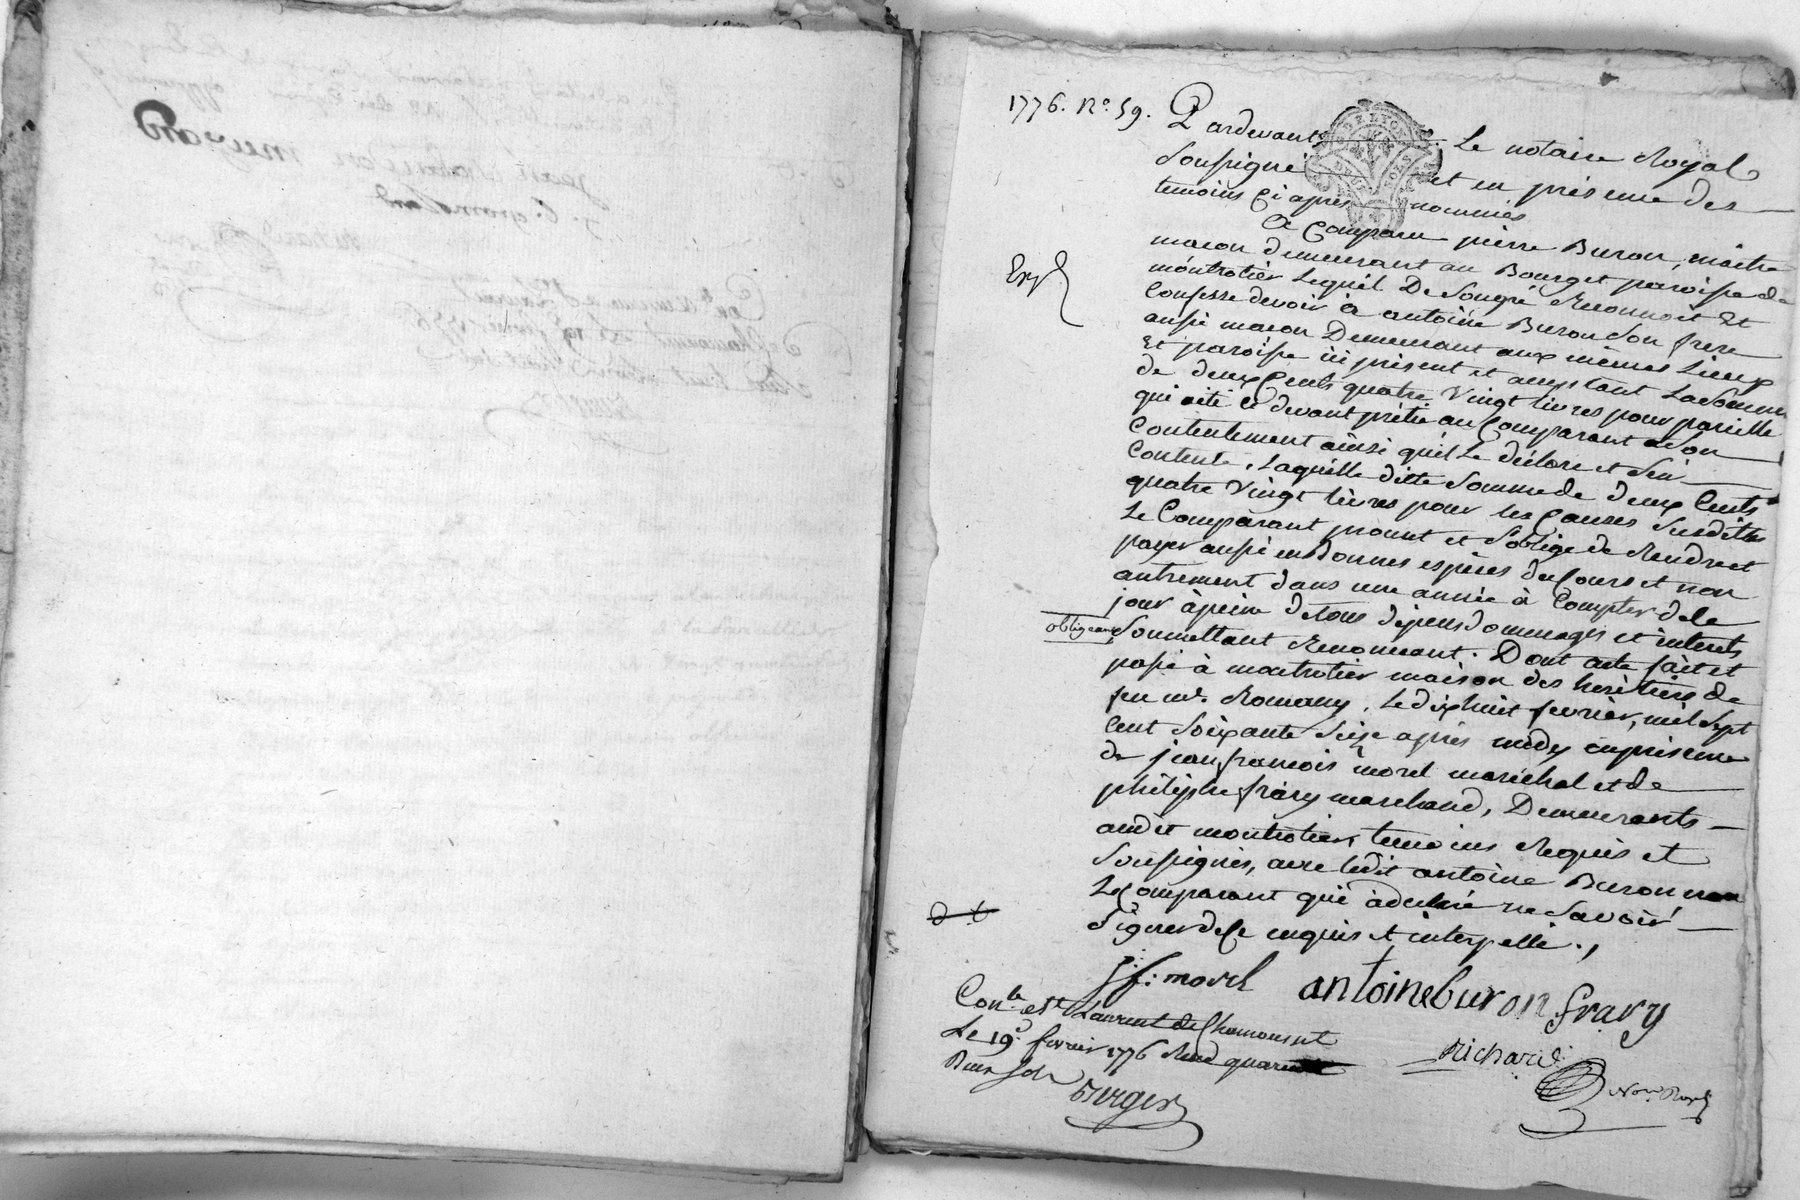 1776. No. 59. Pardevant Le notaire Royal
Soussigné et en présence des
temoins Ci après nommés
A Comparu pierre Buron, maitre
macon demeurant au Bourg et paroisse de
montrotier Lequel De Songré Reconnoit Et
Confesse devoir à antoine Buron Son frere
Exp.
aussi macon Demeurant aux mêmes Lieux
Et paroisse ici présent et acceptant La Somme
de deux Cents quatre Vingt livres pour pareille
qui a été Ci devant prêtée au Comparant a Son
Contentement ainsi quil Le déclare et S'en
Contente, Laquelle ditte Somme de deux Cents
quatre Vingt livres pour les Causes Susdittes
Le Comparant promet et S'oblige de Rendre et
payer aussi en Bonnes espèces du Cours et non
autrement dans une année à Compter de Ce
jour à peine de tous dépens dommages et interets
obligeant
Soumettant Renoncant. Dont acte fait et
passé à montrotier maison des heritiers de
feu me. Romany, Le dixhuit fevrier, mil Sept
Cent Soixante Seize après midy en présence
de jean françois morel maréchal et de
philippe frary marchand, Demeurants
audit montrotier, temoins Requis et
Soussignés, avec ledit antoine Buron non
Le Comparant qui à déclaré ne Savoir
Signer de Ce enquis et interpellé.,
j. f. morel antoine buron frary
Conle. a St Laurent de Chamousset
Le 19e. fevrier 1776 Reçu quarante
Richard
Nore. Royal
Burger